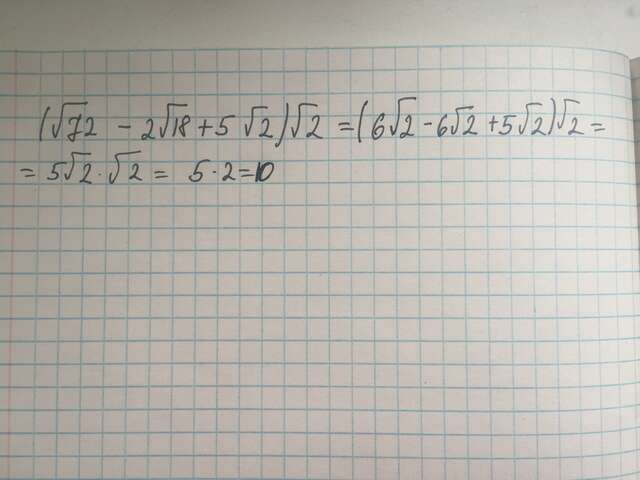 (√72 - 2√18 + 5√2)√2 = (6√2 - 6√2 + 5√2)√2 =
= 5√2 · √2 = 5 · 2 = 10